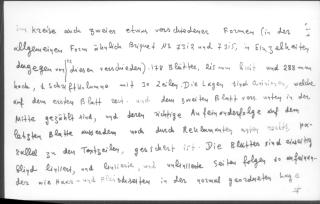 im Kreise auch zweier etwas verschiedener Formen (in der
allgemeinen Form ähnlich Briquet Nr 7312 und 7315, in Einzelheiten
dagegen von diesen verschieden). 178 Blätter, 215 mm breit und 288 mm
hoch, 1 Schriftkolumne mit 30 Zeilen. Die Lagen sind Quinionen, welche
auf dem ersten Blatt rect- und dem zweiten Blatt vers unten in der
Mitte gezählt sind, und deren richtige Aufeinanderfolge auf dem
letzten Blatte ausserdem noch durch Reklamanten unten rechts, par-
allel zu den Textzeilen, gesichert ist. Die Blätter sind einseitig
blind liniiert, und liniierte und unliniierte Seiten folgen so aufeinan-
der wie Haar- und Fleischseiten in der normal geordneten Lage